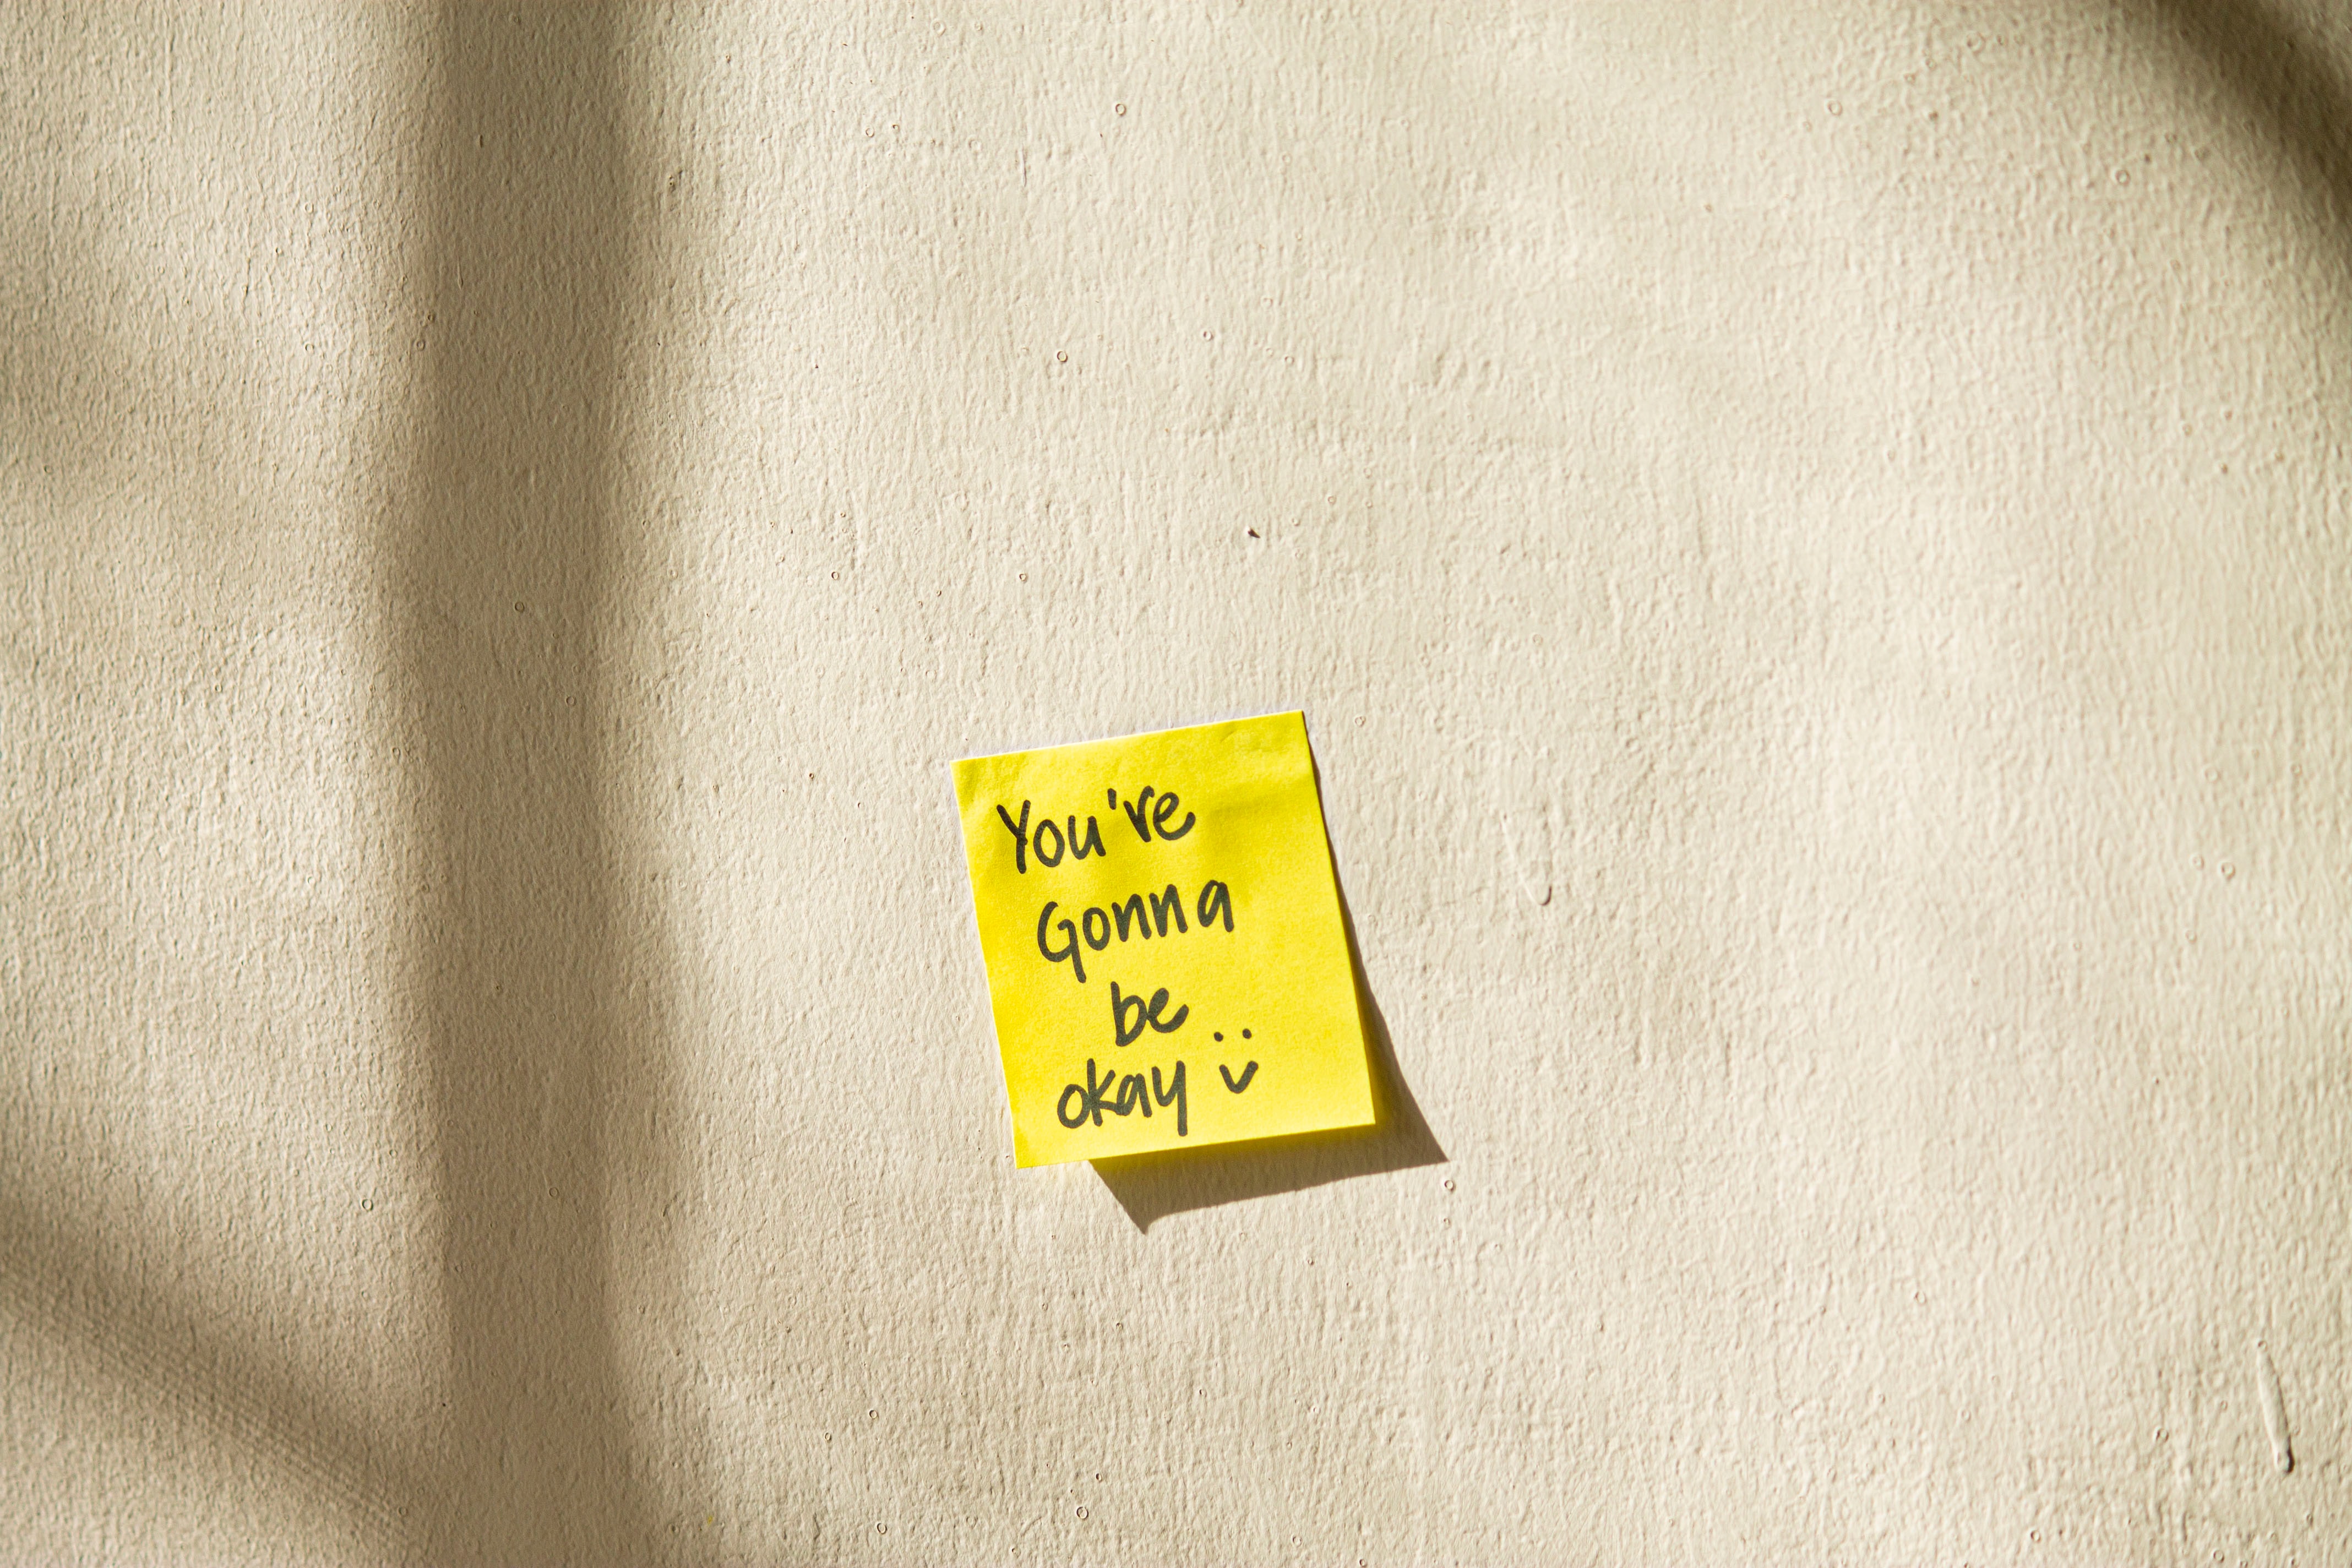 You're
Gonna
be
okay :)